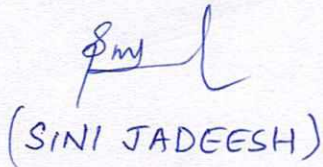 (SINI JADEESH)